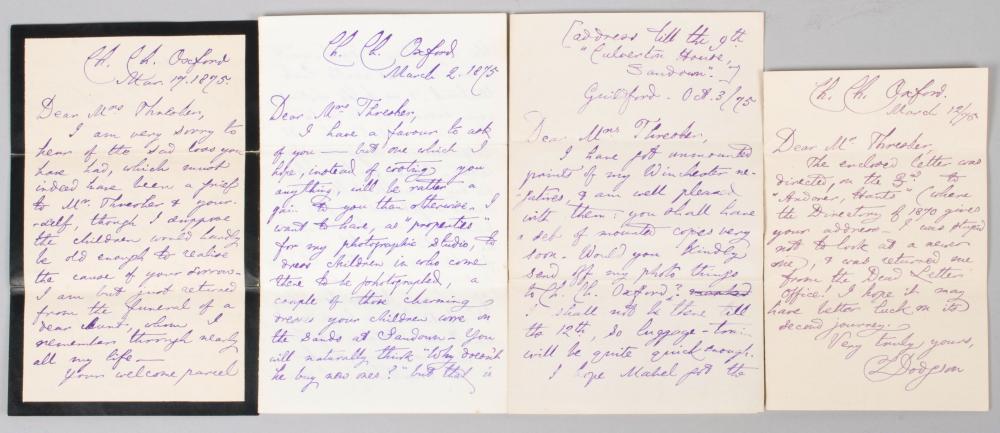 Ch. Ch. Oxford
Mar. 17. 1875.
Dear Mrs Thresher,
I am very sorry to
hear of the sad loss you
have had, which must
indeed have been a grief
to Mr. Thresher & your-
self, though I suppose
the children would hardly
be old enough to realise
the cause of your sorrow.
I am but just returned
from the funeral of a
dear Aunt, whom I
remember through nearly
all my life—
Your welcome parcel
Ch. Ch. Oxford
March 2. 1875
Dear Mrs Thresher,
I have a favour to ask
of you — but one which I
hope, instead of costing you
anything, will be rather a
gain to you than otherwise. I
want to have, as "properties"
for my photographic studio, to
dress children in who come
there to be photographed, a
couple of those charming
dresses your children wore on
the sands at Sandown — You
will naturally think "Why doesn't
he buy new ones?" but that is
[address till the 9th
"Culverton House,
Sandown".]
Guildford. Oct. 3/75
Dear Mrs Thresher,
I have got unmounted
prints of my Winchester ne-
gatives & am well pleased
with them: you shall have
a set of mounted copies very
soon. Would you kindly
send off my photo things
to Ch. Ch. Oxford?
I shall not be there till
the 12th, so luggage-train
will be quite quick enough.
I hope Mabel got the
Ch. Ch. Oxford.
March 12/75
Dear Mr Thresher,
The enclosed letter was
directed, on the 3rd to
"Andover, Hants" (where
the Directory of 1870 gives
your address. I was stupid
not to look at a newer
one), & was returned me
from the Dead Letter
Office. I hope it may
have better luck on its
second journey.
Very truly yours,
C L Dodgson